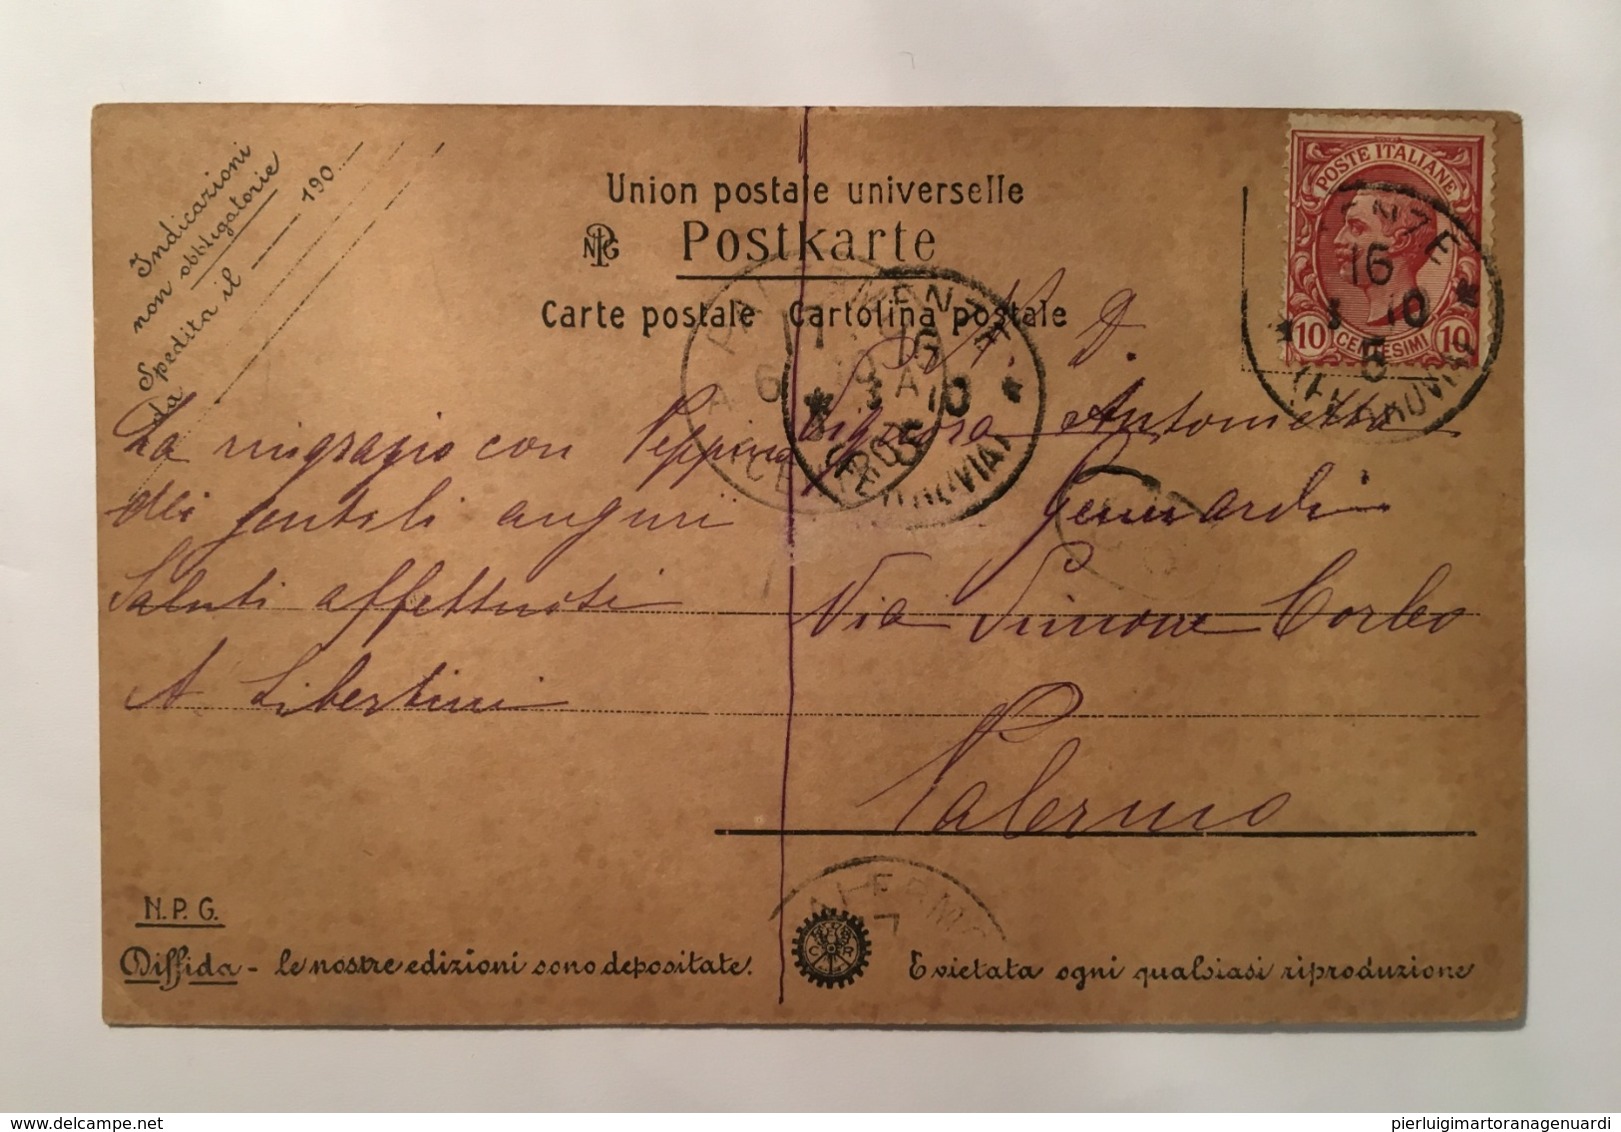 Indicazioni
non obbligatorie
Spedita il 190
da
Union postale universelle
NPG Postkarte
Carte postale Cartolina postale
POSTE ITALIANE
10 CENTESIMI 10
16
3 10
5
FIRENZE
(FERROVIA)
PALERMO
La ringrazio con Peppino
dei gentili auguri
Saluti affettuosi
A. Libertini
N. D.
Signora Antonietta
Genuardi
Via Simone Corleo
Palermo
PALERMO
7
N.P.G.
Diffida - le nostre edizioni sono depositate.
E vietata ogni qualsiasi riproduzione
delcampe.net
pierluigimartoranagenuardi